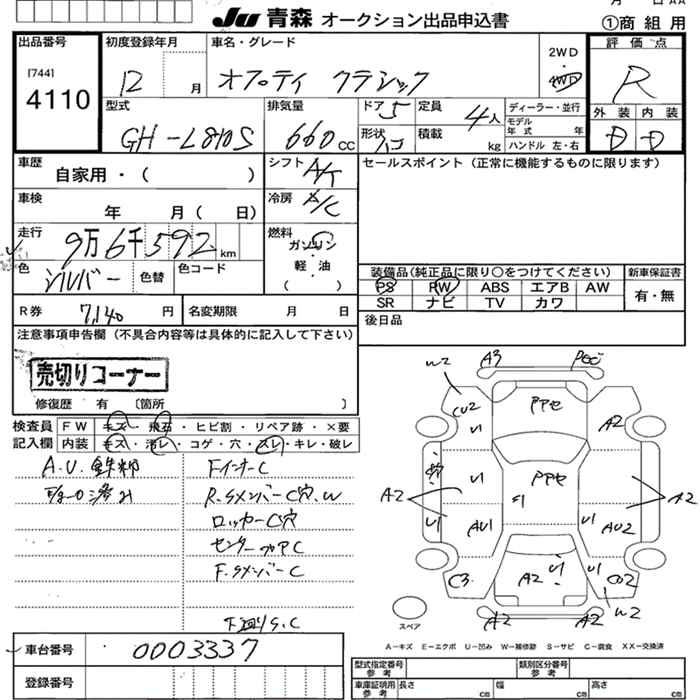 月 日 AA
JU 青森 オークション出品申込書
①商組用
出品番号
[744]
4110
初度登録年月
12 月
車名・グレード
オプティ クラシック
2WD
・
4WD
評価点
R
型式
GH-L810S
排気量
660 cc
ドア 5
定員 4人
形状
積載 kg
ディーラー・並行
モデル年式 年
ハンドル 左・右
外装
内装
D
D
車歴
自家用・( )
シフト
A/T
セールスポイント(正常に機能するものに限ります)
車検
年 月( 日)
冷房
A/C
走行
9万6千592 km
燃料
ガソリン
・
軽・油
( )
色
シルバー
色替
色コード
装備品(純正品に限り○をつけてください)
新車保証書
PS PW ABS エアB AW
SR ナビ TV カワ
有・無
R券
7,140 円
名変期限 月 日
後日品
注意事項申告欄(不具合内容等は具体的に記入して下さい)
売切りコーナー
修復歴 有 〔箇所 〕
検査員記入欄
FW キズ・飛石・ヒビ割・リペア跡・×要
内装 キズ・汚レ・コゲ・穴・スレ・キレ・破レ
A.U.
FインナーC
R.サメンバーC穴.W
ロッカーC穴
センターフロアC
F.サメンバーC
下廻りS.C
A3
W2
CU2
U1
A2
AU1
C3
A2
U1
AU2
CU2
W2
A2
A2
A2
スペア
A-キズ E-エクボ U-凹み W-補修跡 S-サビ C-腐食 XX-交換済
車台番号
0003337
登録番号
型式指定番号 参考
類別区分番号 参考
車庫証明用 参考
長さ cm
幅 cm
高さ cm